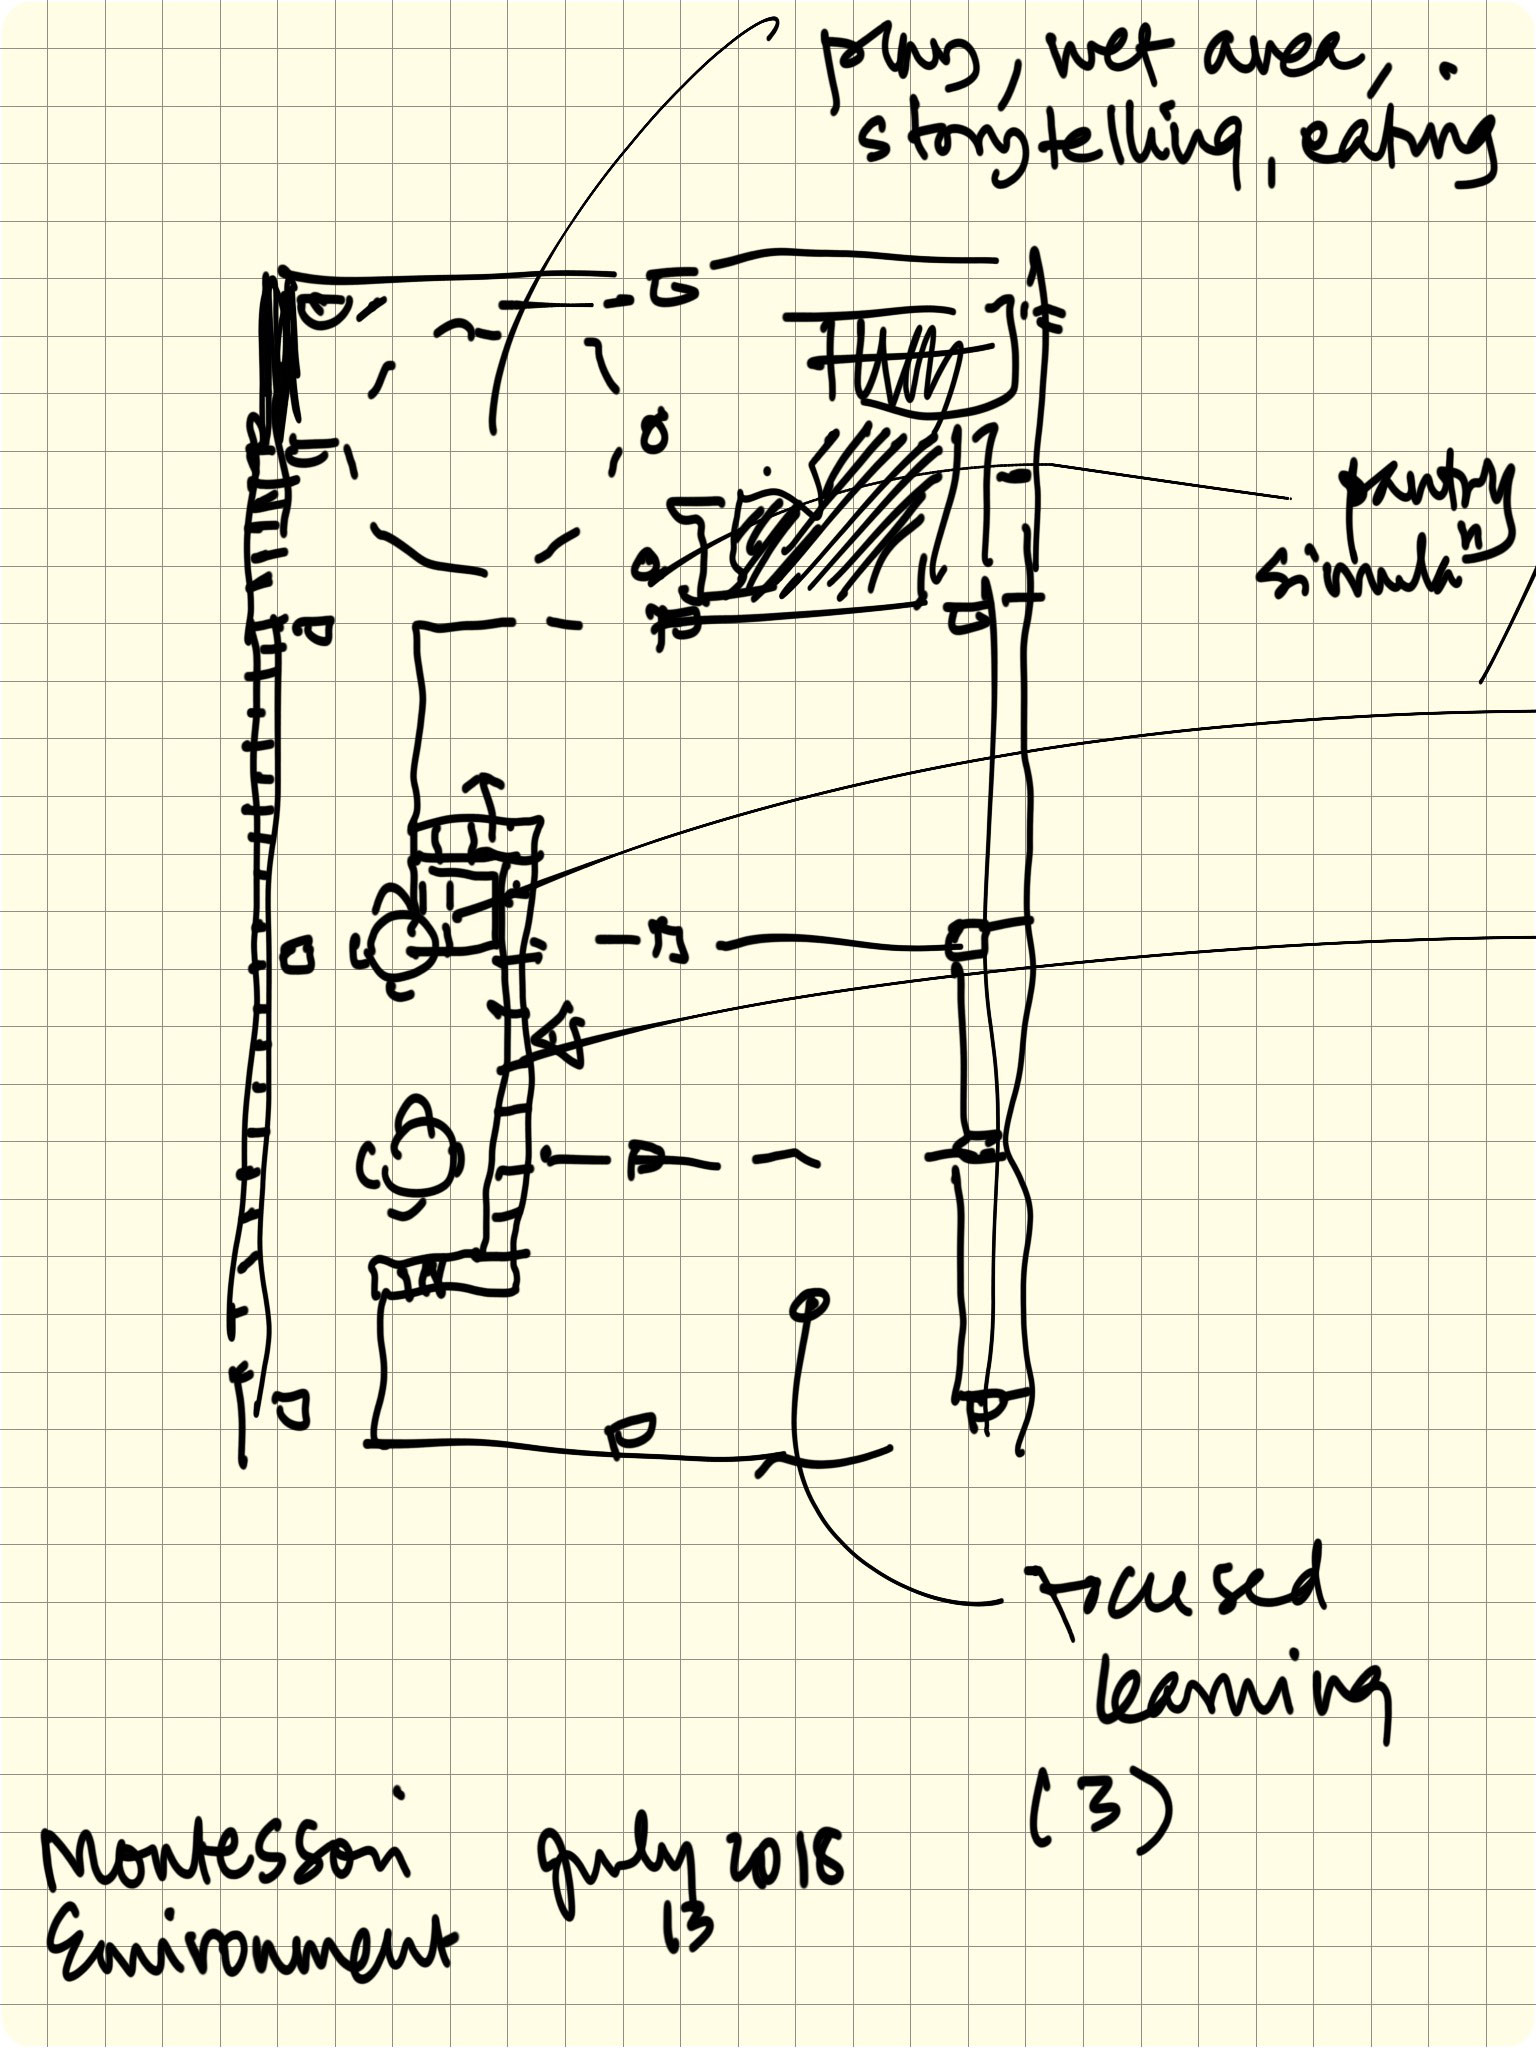 play, wet area,
storytelling, eating
pantry
simula
n
focused
learning
(3)
Montessori july 2018
Environment 13